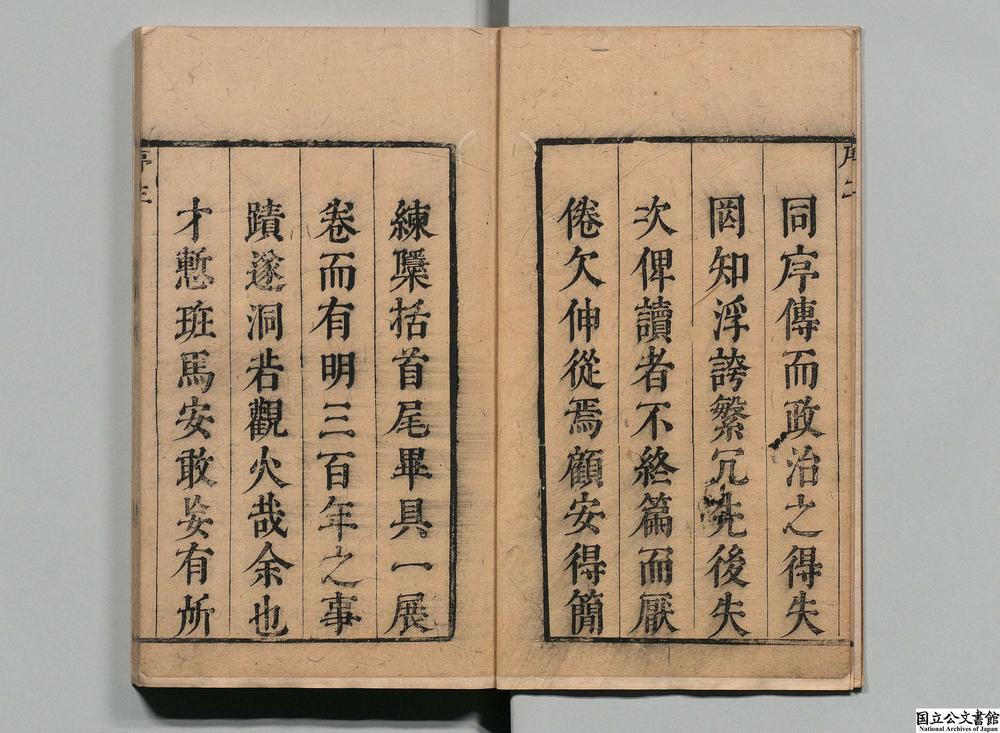 同序傳而政治之得失
罔知浮誇繁冗先後失
次俾讀者不終篇而厭
倦欠伸從焉顧安得簡
練檃括首尾畢具一展
卷而有明三百年之事
蹟遂洞若觀火哉余也
才慙班馬安敢妄有所
序三
国立公文書館
National Archives of Japan